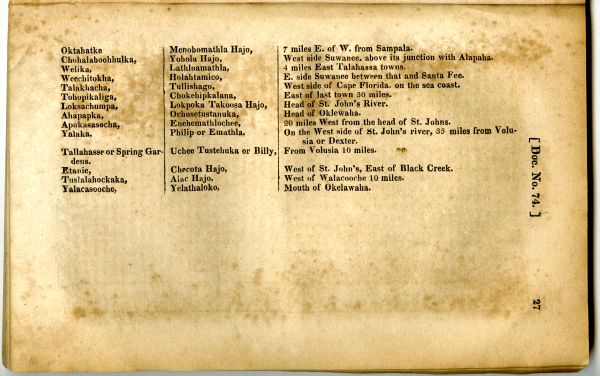 Oktahatke Menohomathla Hajo, 7 miles E. of W. from Sampala.
Chohalaboohhulka, Yohola Hajo, West side Suwanee, above its junction with Alapaha.
Welika, Lathloamathla, 4 miles East Talahassa towns.
Weechitokha, Holahtamico, E. side Suwanee between that and Santa Fee.
Talakhacha, Tullishago, West side of Cape Florida. on the sea coast.
Tohopikaliga, Chokehipkalana, East of last town 30 miles.
Loksachumpa, Lokpoka Takoosa Hajo, Head of St. John's River.
Ahapapka, Ochusetustanuka, Head of Oklewaha.
Apukasasocha, Enehemathlochee, 20 miles West from the head of St. Johns.
Yalaka, Philip or Emathla, On the West side of St. John's river, 35 miles from Volu-
sia or Dexter.
Tallahasse or Spring Gar- Uchee Tustehuka or Billy, From Volusia 10 miles.
dens.
Etanie, Checota Hajo, West of St. John's, East of Black Creek.
Tuslalahockaka, Aiac Hajo, West of Walacooche 10 miles.
Yalacasooche, Yelathaloko, Mouth of Okelawaha.
[ Doc. No. 74. ]
27